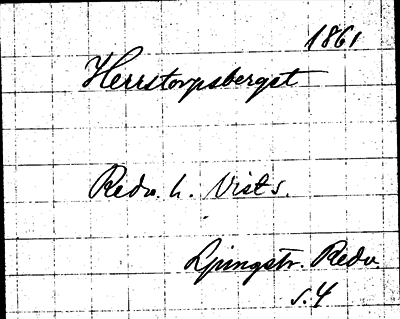 1861
Herrstorpsberget
Redv. h. Vist s.
Ljungstr. Redv.
s. 4